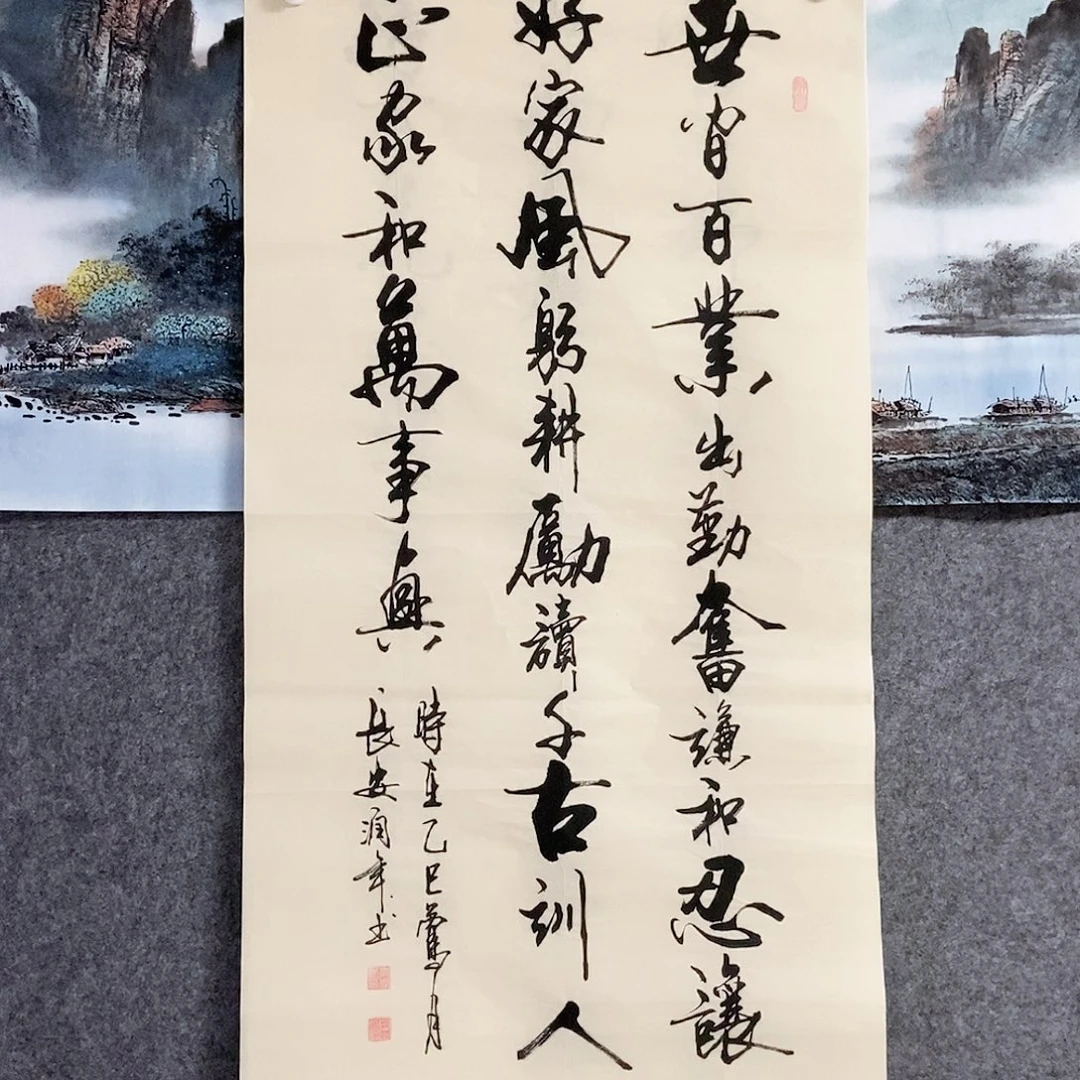 世間百業出勤奮謙和忍讓
好家風躬耕勵讀千古訓人
正家和萬事興
時在乙巳月
長安潤年书